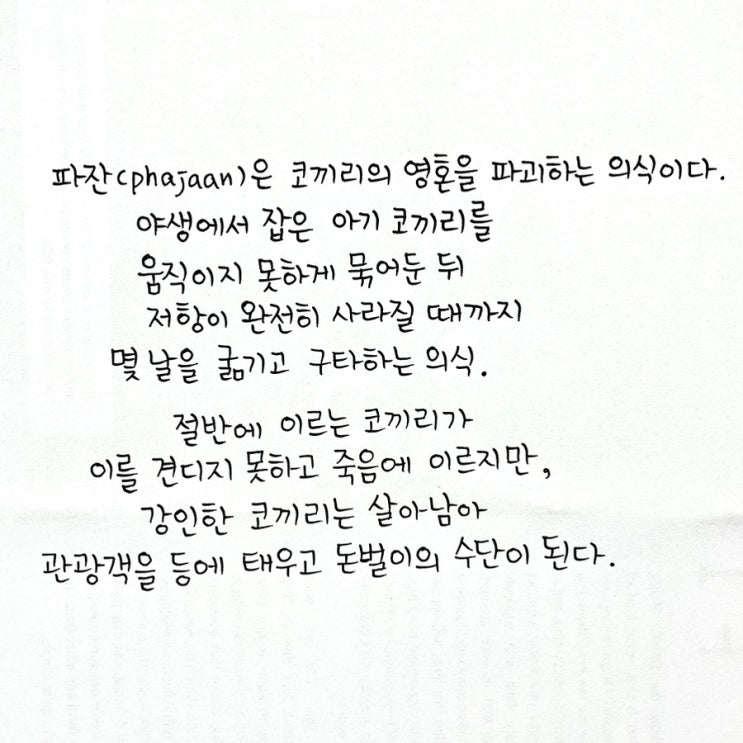 파잔(phajaan)은 코끼리의 영혼을 파괴하는 의식이다.
야생에서 잡은 아기 코끼리를
움직이지 못하게 묶어둔 뒤
저항이 완전히 사라질 때까지
몇 날을 굶기고 구타하는 의식.
절반에 이르는 코끼리가
이를 견디지 못하고 죽음에 이르지만,
강인한 코끼리는 살아남아
관광객을 등에 태우고 돈벌이의 수단이 된다.